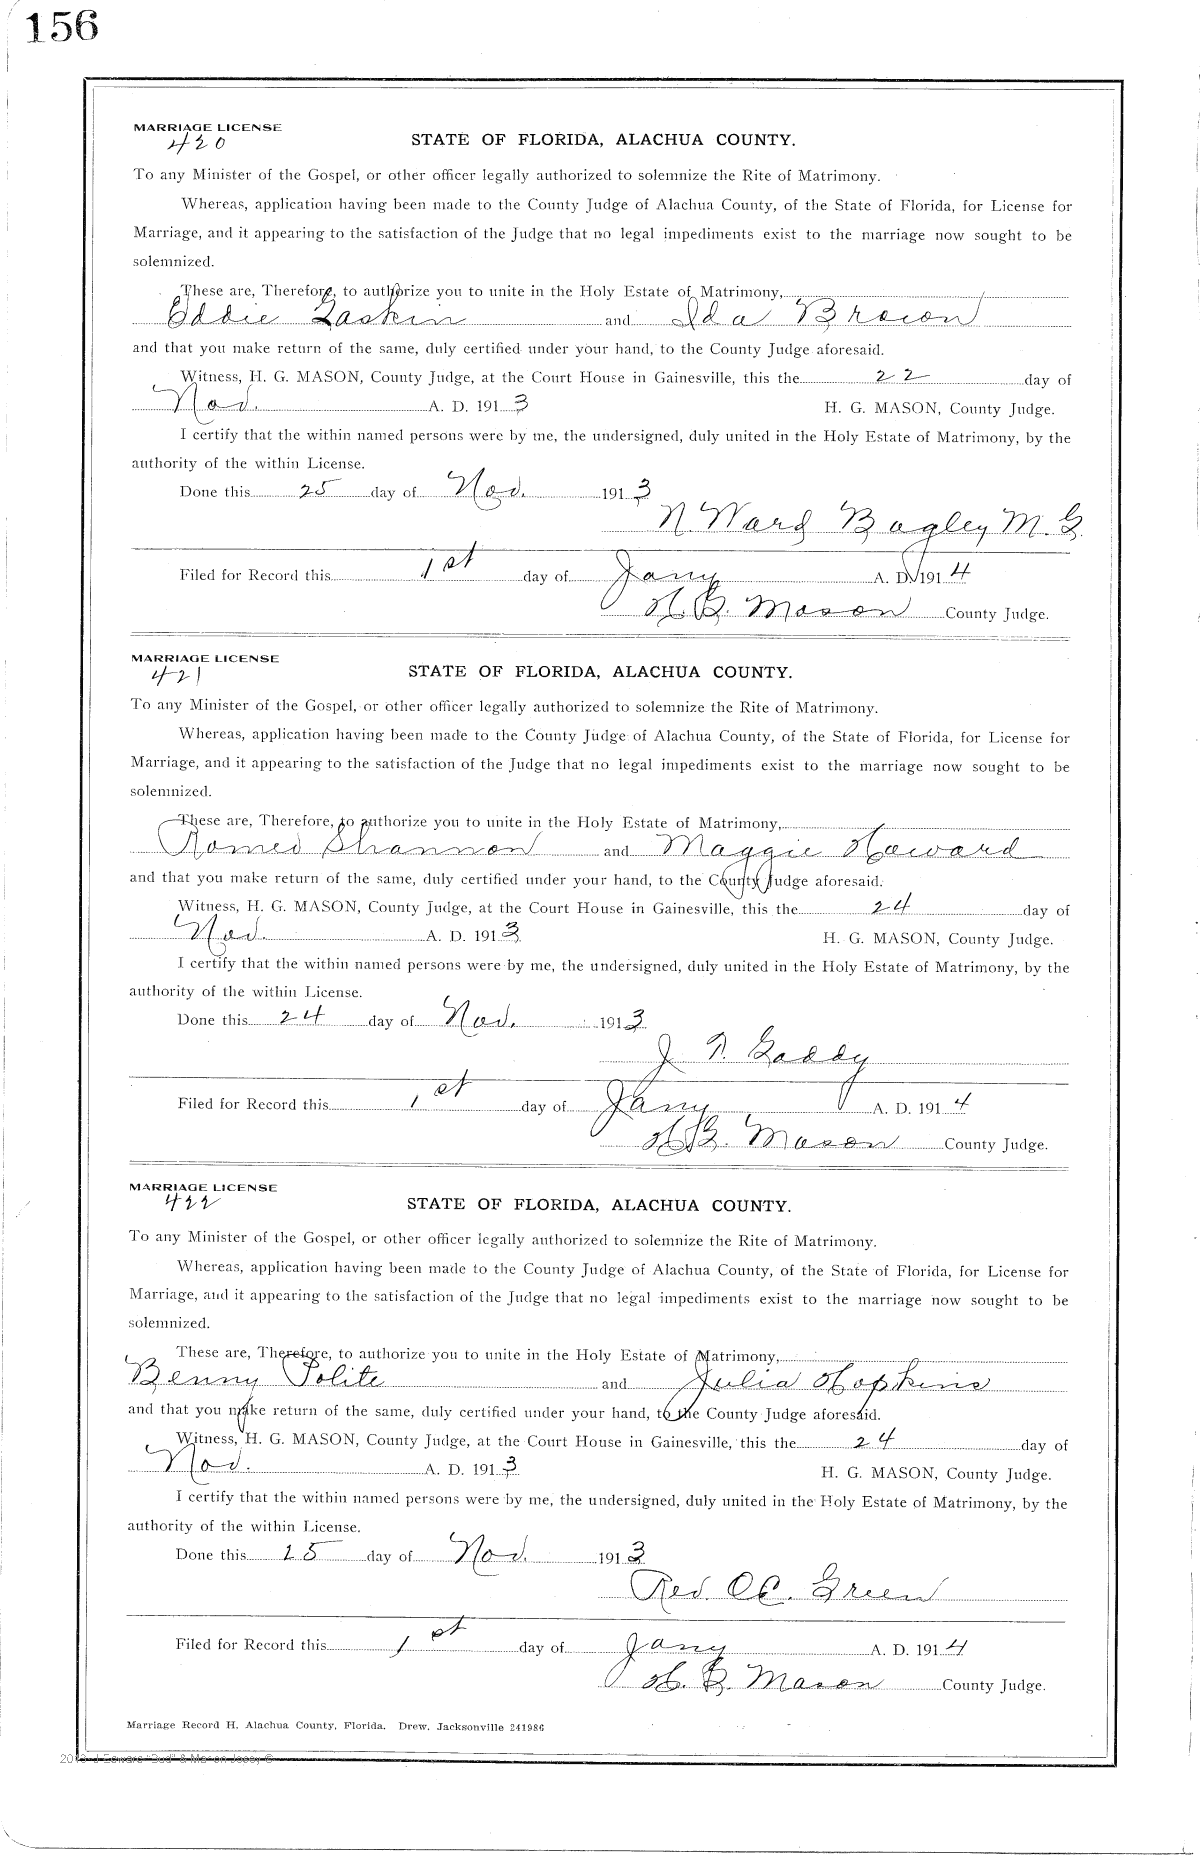 156
MARRIAGE LICENSE
420
STATE OF FLORIDA, ALACHUA COUNTY.
To any Minister of the Gospel, or other officer legally authorized to solemnize the Rite of Matrimony.
Whereas, application having been made to the County Judge of Alachua County, of the State of Florida, for License for
Marriage, and it appearing to the satisfaction of the Judge that no legal impediments exist to the marriage now sought to be
solemnized.
These are, Therefore, to authorize you to unite in the Holy Estate of Matrimony,
Eddie Gaskin and Ida Brown
and that you make return of the same, duly certified under your hand, to the County Judge aforesaid.
Witness, H. G. MASON, County Judge, at the Court House in Gainesville, this the 22 day of
Nov. A. D. 1913 H. G. MASON, County Judge.
I certify that the within named persons were by me, the undersigned, duly united in the Holy Estate of Matrimony, by the
authority of the within License.
Done this 25 day of Nov. 1913
N. Ward Bagley M. G.
Filed for Record this 1st day of Jany A. D. 1914
H. G. Mason County Judge.
MARRIAGE LICENSE
421
STATE OF FLORIDA, ALACHUA COUNTY.
To any Minister of the Gospel, or other officer legally authorized to solemnize the Rite of Matrimony.
Whereas, application having been made to the County Judge of Alachua County, of the State of Florida, for License for
Marriage, and it appearing to the satisfaction of the Judge that no legal impediments exist to the marriage now sought to be
solemnized.
These are, Therefore, to authorize you to unite in the Holy Estate of Matrimony,
Romeo Shannon and Maggie Howard
and that you make return of the same, duly certified under your hand, to the County Judge aforesaid.
Witness, H. G. MASON, County Judge, at the Court House in Gainesville, this the 24 day of
Nov. A. D. 1913 H. G. MASON, County Judge.
I certify that the within named persons were by me, the undersigned, duly united in the Holy Estate of Matrimony, by the
authority of the within License.
Done this 24 day of Nov. 1913
J. Gaddy
Filed for Record this 1st day of Jany A. D. 1914
H. G. Mason County Judge.
MARRIAGE LICENSE
422
STATE OF FLORIDA, ALACHUA COUNTY.
To any Minister of the Gospel, or other officer legally authorized to solemnize the Rite of Matrimony.
Whereas, application having been made to the County Judge of Alachua County, of the State of Florida, for License for
Marriage, and it appearing to the satisfaction of the Judge that no legal impediments exist to the marriage now sought to be
solemnized.
These are, Therefore, to authorize you to unite in the Holy Estate of Matrimony,
Benny Polite and Julia Hopkins
and that you make return of the same, duly certified under your hand, to the County Judge aforesaid.
Witness, H. G. MASON, County Judge, at the Court House in Gainesville, this the 24 day of
Nov. A. D. 1913 H. G. MASON, County Judge.
I certify that the within named persons were by me, the undersigned, duly united in the Holy Estate of Matrimony, by the
authority of the within License.
Done this 25 day of Nov. 1913
Rev. Green
Filed for Record this 1st day of Jany A. D. 1914
H. G. Mason County Judge.
Marriage Record H, Alachua County, Florida. Drew, Jacksonville 241986